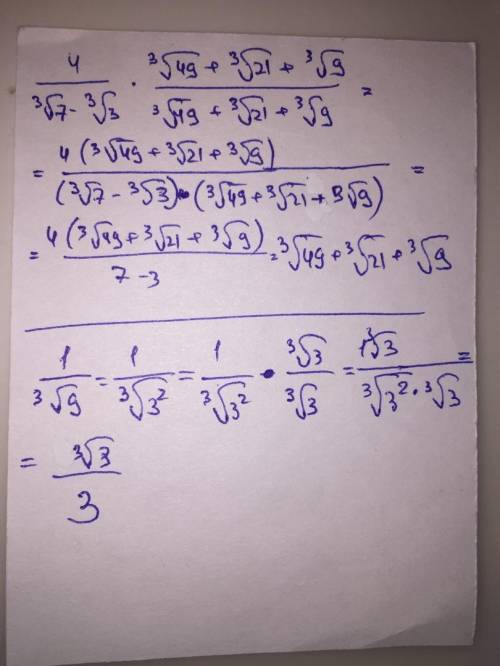 4/(³√7 - ³√3) · (³√49 + ³√21 + ³√9)/(³√49 + ³√21 + ³√9) =
= 4(³√49 + ³√21 + ³√9)/((³√7 - ³√3)·(³√49 + ³√21 + ³√9)) =
= 4(³√49 + ³√21 + ³√9)/(7 - 3) = ³√49 + ³√21 + ³√9
1/³√9 = 1/³√3² = 1/³√3² · ³√3/³√3 = 1³√3/(³√3² · ³√3) =
= ³√3/3